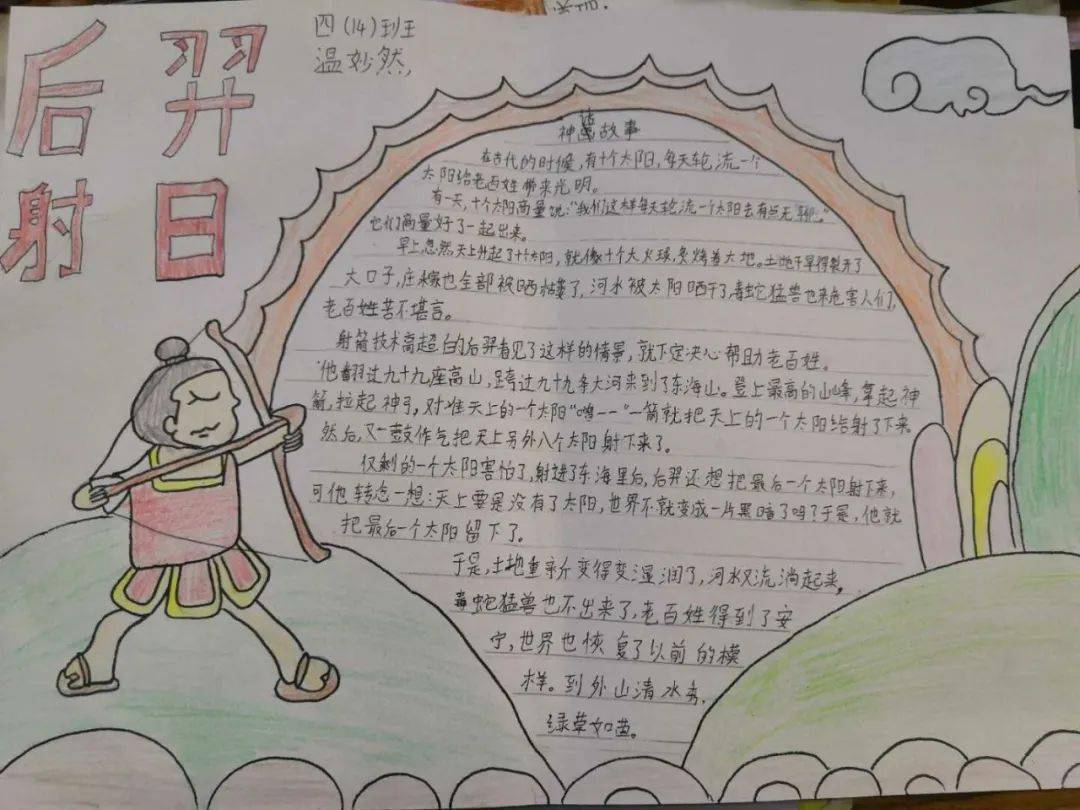 后羿
射日
四(14)班
温妙然
神话故事
在古代的时候,有十个太阳,每天轮流一个
太阳给老百姓带来光明。
有一天,十个太阳商量说:“我们这样每天轮流一个太阳去有点无聊。”
他们商量好了一起出来。
早上忽然天上升起了十个太阳,就像十个大火球,炙烤着大地。土地干旱得裂开了
大口子,庄稼也全部被晒枯萎了,河水被太阳晒干了,毒蛇猛兽也来危害人们,
老百姓苦不堪言。
射箭技术高超的后羿看见了这样的情景,就下定决心帮助老百姓。
他翻过九十九座高山,跨过九十九条大河来到了东海山。登上最高的山峰,拿起神
箭,拉起神弓,对准天上的一个太阳“嗖——”一箭就把天上的一个太阳给射了下来。
然后,又一鼓作气把天上另外八个太阳射下来了。
仅剩的一个太阳害怕了,躲进了东海里后,后羿还想把最后一个太阳射下来,
可他转念一想:天上要是没有了太阳,世界不就变成一片黑暗了吗?于是,他就
把最后一个太阳留下了。
于是,土地重新变得变湿润了,河水又流淌起来,
毒蛇猛兽也不出来了,老百姓得到了安
宁,世界也恢复了以前的模
样。到外山清水秀,
绿草如茵。